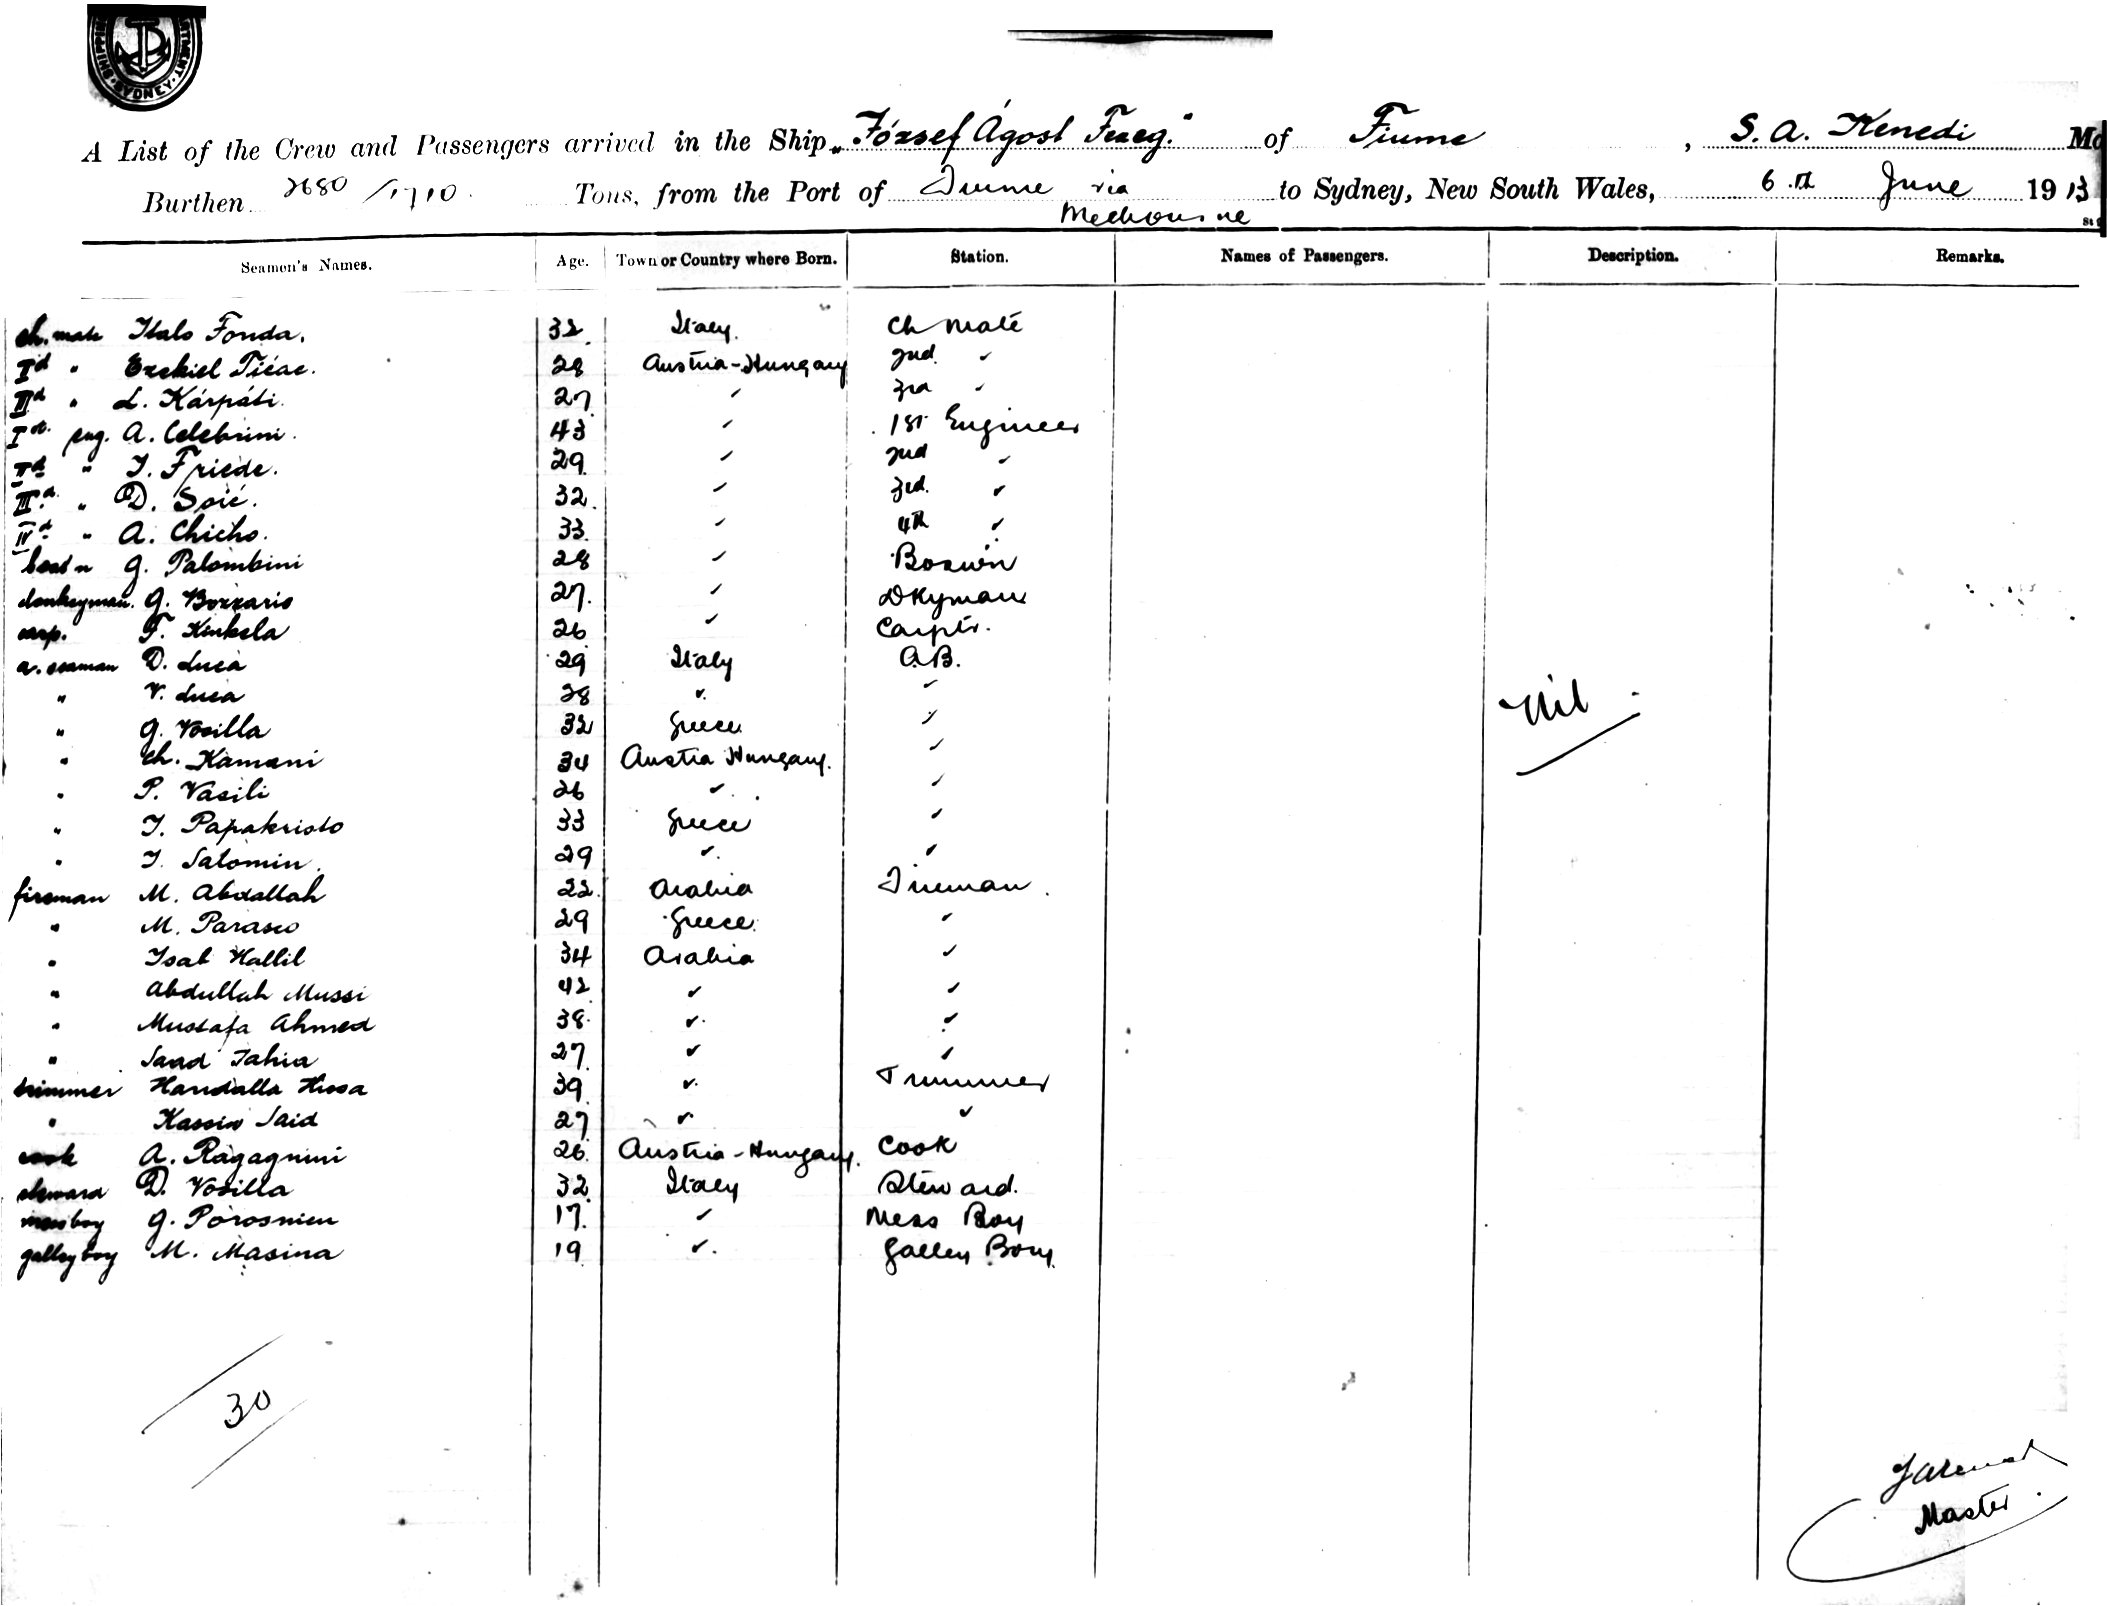 SHIPPING
SYDNEY
A List of the Crew and Passengers arrived in the Ship „József Ágost Fzeg." of Fiume, S. A. Kenedi
Burthen 2680/1710 Tons, from the Port of Fiume via Melbourne to Sydney, New South Wales, 6.th June 1913
Seamen's Names. Age. Town or Country where Born. Station. Names of Passengers. Description. Remarks.
ch. mate Italo Fonda. 32 Italy Ch Mate
Ezekiel Ticac. 28 Austria-Hungary 2nd. "
L. Kárpáti. 27 " 3rd "
Ist eng. A. Celebrini. 43 " 1st Engineer
" J. Friede. 29 " 2nd "
III.d " D. Soić. 32 " 3rd. "
IVd " A. Chicho. 33 " 4th "
boat'n G. Palombini 28 " Bosun
donkeyman. G. Bozzario 27. " Dkyman
carp. F. Kinkela 26 " Carptr.
a. seaman D. Luca 29 Italy A.B.
" V. Luca 28 " "
" G. Vosilla 32 Greece "
" Ch. Kamani 34 Austria Hungary. "
" P. Vasili 26 " "
" J. Papakristo 33 Greece "
" J. Salomin. 29 " "
fireman M. Abdallah 22 Arabia Fireman.
" M. Parasco 29 Greece "
" Isak Hallil 34 Arabia "
" Abdullah Mussi 42 " "
" Mustafa Ahmed 38 " "
" Saad Tahia 27 " "
trimmer Handalla Hissa 39 " Trimmer
" Kassin Said 27 " "
cook A. Ragagnini 26 Austria-Hungary. Cook
steward D. Vosilla 32 Italy Steward.
messboy G. Porosnicu 17. " Mess Boy
galley boy M. Masina 19 " Galley Boy.
Nil
30
Master.